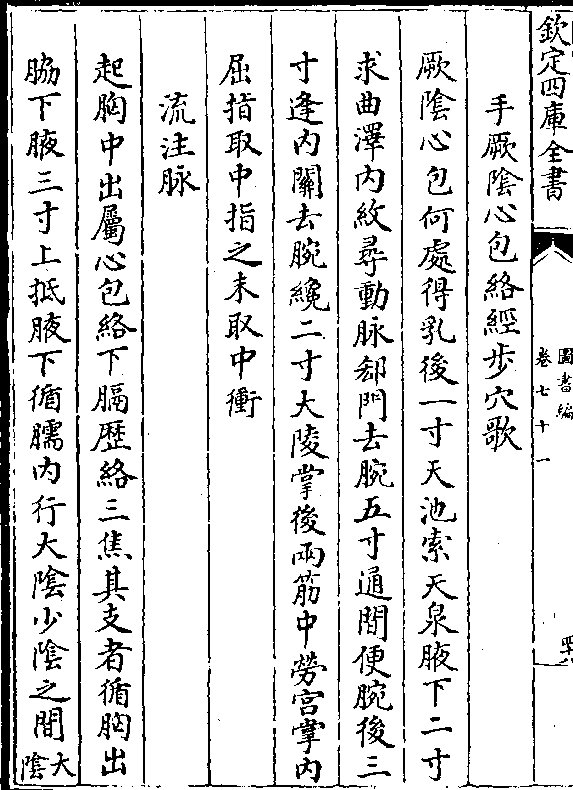 欽定四庫全書
圖書編
卷七十一
手厥陰心包絡經步穴歌
厥陰心包何處得乳後一寸天池索天泉腋下二寸
求曲澤内紋尋動脉郄門去腕五寸通間便腕後三
寸逢内關去腕纔二寸大陵掌後兩筋中勞宫掌内
屈指取中指之末取中衝
流注脉
起胸中出屬心包絡下膈歴絡三焦其支者循胸出
脇下腋三寸上抵腋下循臑内行大陰少陰之間大
陰